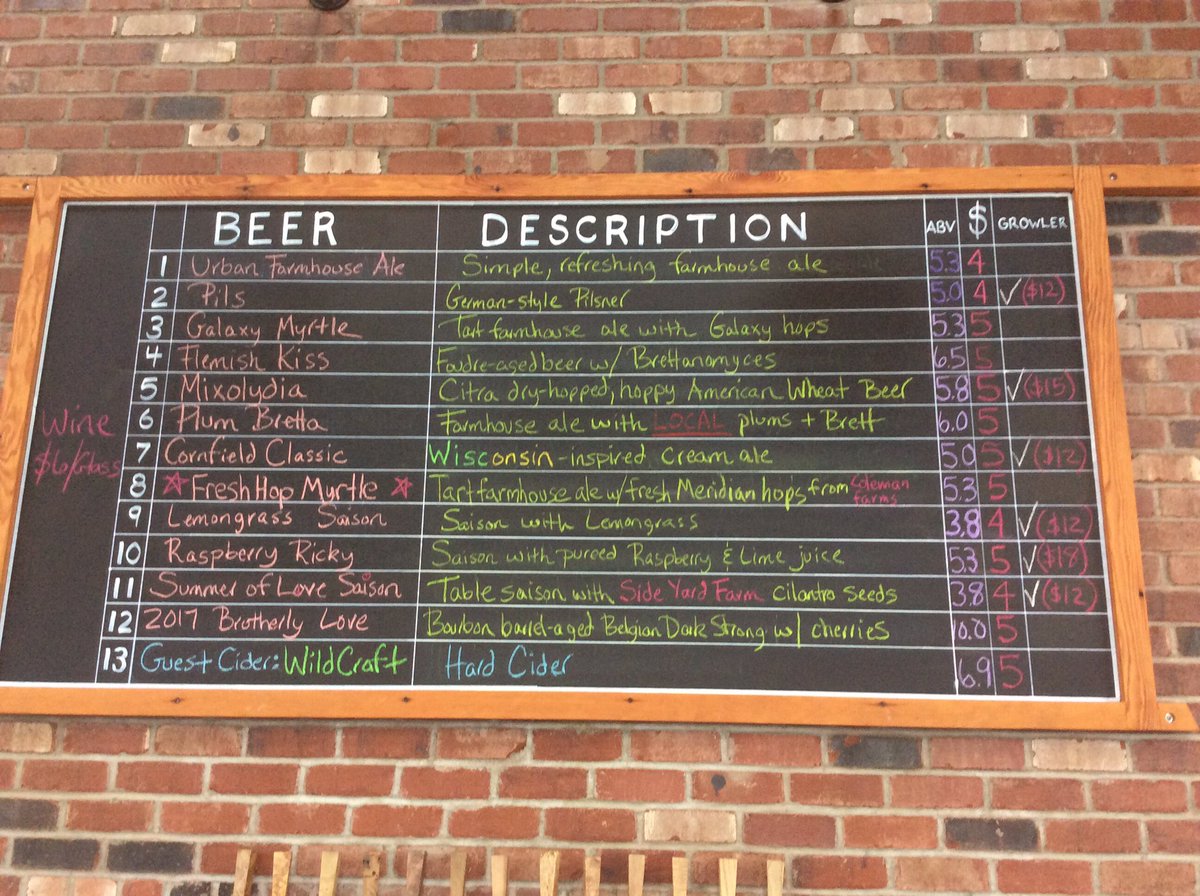 BEER DESCRIPTION ABV $ GROWLER
1 Urban Farmhouse Ale Simple, refreshing farmhouse ale 5.3 4
2 Pils German-style Pilsner 5.0 4 ✓($12)
3 Galaxy Myrtle Tart farmhouse ale with Galaxy hops 5.3 5
4 Flemish Kiss Foudre-aged beer w/ Brettanomyces 6.5 5
5 Mixolydia Citra dry-hopped, hoppy American Wheat Beer 5.8 5 ✓($15)
6 Plum Bretta Farmhouse ale with LOCAL plums + Brett 6.0 5
7 Cornfield Classic Wisconsin-inspired cream ale 5.0 5 ✓($12)
8 ☆ Fresh Hop Myrtle ☆ Tart farmhouse ale w/ fresh Meridian hops from Coleman farms 5.3 5
9 Lemongrass Saison Saison with Lemongrass 3.8 4 ✓($12)
10 Raspberry Ricky Saison with pureed Raspberry & Lime juice 5.3 5 ✓($18)
11 Summer of Love Saison Table saison with Side Yard Farm cilantro seeds 3.8 4 ✓($12)
12 2017 Brotherly Love Bourbon barrel-aged Belgian Dark Strong w/ cherries 10.0 5
13 Guest Cider: WildCraft Hard Cider 6.9 5
Wine
$6/Glass